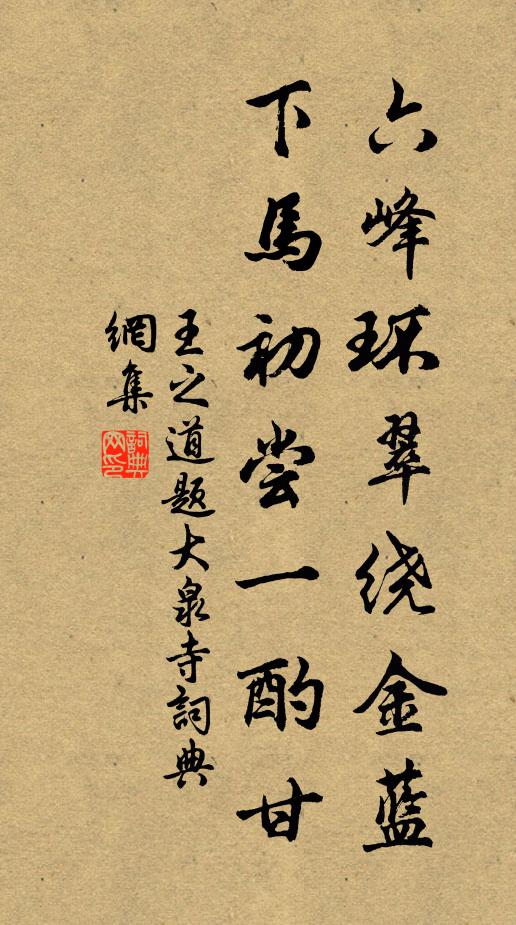 六峰环翠绕金蓝
下馬初尝一酌甘
王之道题大泉寺詞典
網集
詞典网印